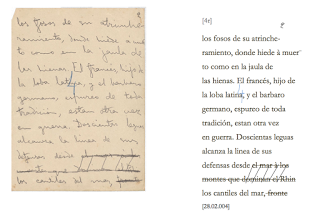 los fosos de su atrinche-
ramiento, donde hiede à muer
to como en la jaula de
las hienas. El francés, hijo de
la loba latina, y el barbaro
germano, espureo de toda
tradición, estan otra vez
en guerra. Doscientas leguas
alcanza la linea de sus
defensas desde
los cantiles del mar,
[4r]
los fosos de su atrinche-
ramiento, donde hiede à muer
to como en la jaula de
las hienas. El francés, hijo de
la loba latina, y el barbaro
germano, espureo de toda
tradición, estan otra vez
en guerra. Doscientas leguas
alcanza la linea de sus
defensas desde el mar à los
montes que dominan el Rhin
los cantiles del mar, fronte
[28.02.004]